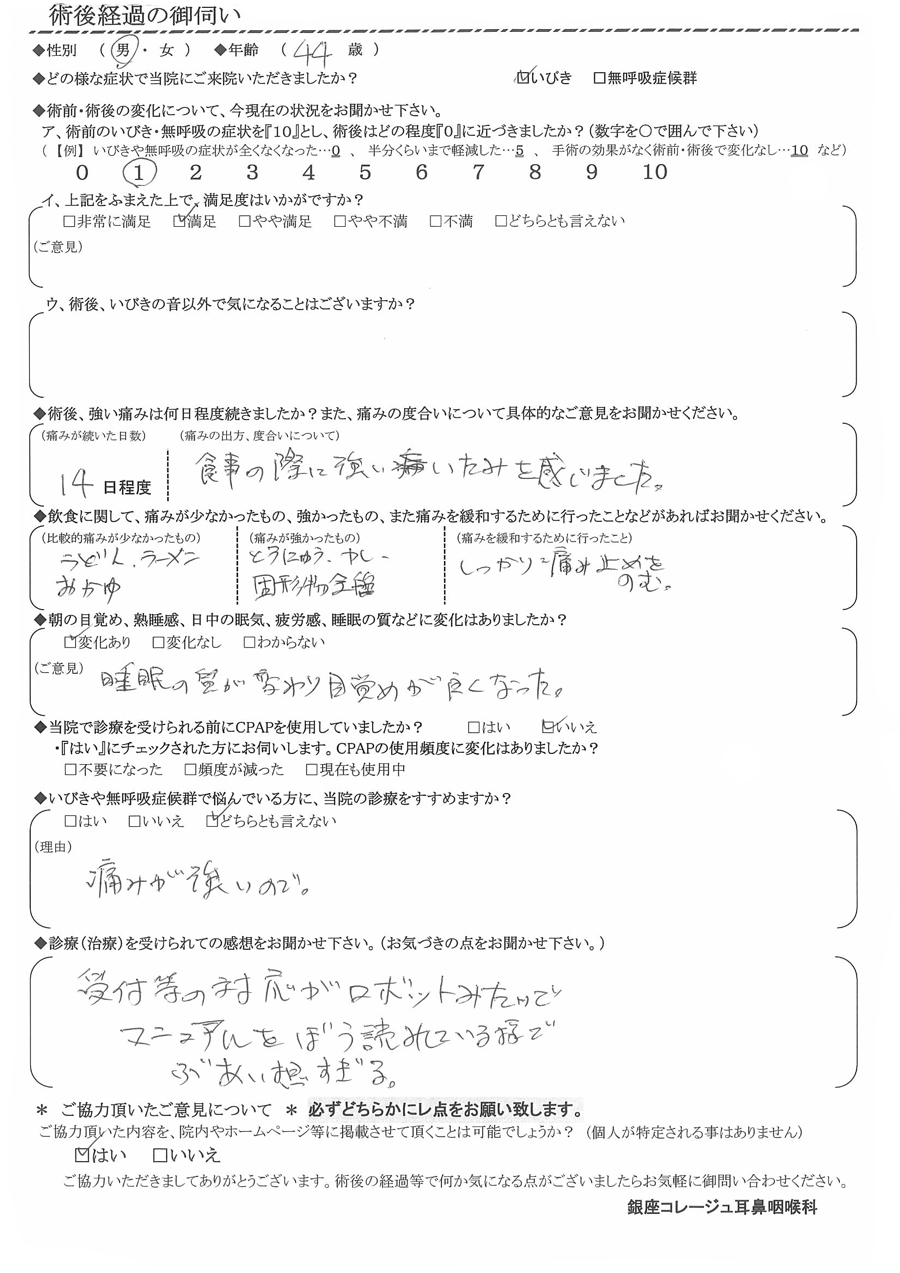 術後経過の御伺い
◆性別 ( 男 ・ 女 ) ◆年齢 ( 44 歳 )
◆どの様な症状で当院にご来院いただきましたか? ☑いびき □無呼吸症候群
◆術前・術後の変化について、今現在の状況をお聞かせ下さい。
ア、術前のいびき・無呼吸の症状を『10』とし、術後はどの程度『0』に近づきましたか?(数字を○で囲んで下さい)
(【例】 いびきや無呼吸の症状が全くなくなった…0 、 半分くらいまで軽減した…5 、 手術の効果がなく術前・術後で変化なし…10 など)
0 1 2 3 4 5 6 7 8 9 10
イ、上記をふまえた上で、満足度はいかがですか?
□非常に満足 ☑満足 □やや満足 □やや不満 □不満 □どちらとも言えない
(ご意見)
ウ、術後、いびきの音以外で気になることはございますか?
◆術後、強い痛みは何日程度続きましたか?また、痛みの度合いについて具体的なご意見をお聞かせください。
(痛みが続いた日数) (痛みの出方、度合いについて)
14 日程度 食事の際に強いいたみを感じました。
◆飲食に関して、痛みが少なかったもの、強かったもの、また痛みを緩和するために行ったことなどがあればお聞かせください。
(比較的痛みが少なかったもの) (痛みが強かったもの) (痛みを緩和するために行ったこと)
うどん、ラーメン とうにゅう、カレー しっかりと痛み止めを
おかゆ 固形物全種 のむ。
◆朝の目覚め、熟睡感、日中の眠気、疲労感、睡眠の質などに変化はありましたか?
☑変化あり □変化なし □わからない
(ご意見) 睡眠の質が変わり目覚めが良くなった。
◆当院で診療を受けられる前にCPAPを使用していましたか? □はい ☑いいえ
・『はい』にチェックされた方にお伺いします。CPAPの使用頻度に変化はありましたか?
□不要になった □頻度が減った □現在も使用中
◆いびきや無呼吸症候群で悩んでいる方に、当院の診療をすすめますか?
□はい □いいえ ☑どちらとも言えない
(理由)
痛みが強いので。
◆診療(治療)を受けられての感想をお聞かせ下さい。(お気づきの点をお聞かせ下さい。)
受付等の対応がロボットみたいで
マニュアルをぼう読れている様で
ぶあい想すぎる。
＊ ご協力頂いたご意見について ＊ 必ずどちらかにレ点をお願い致します。
ご協力頂いた内容を、院内やホームページ等に掲載させて頂くことは可能でしょうか? (個人が特定される事はありません)
☑はい □いいえ
ご協力いただきましてありがとうございます。術後の経過等で何か気になる点がございましたらお気軽に御問い合わせください。
銀座コレージュ耳鼻咽喉科